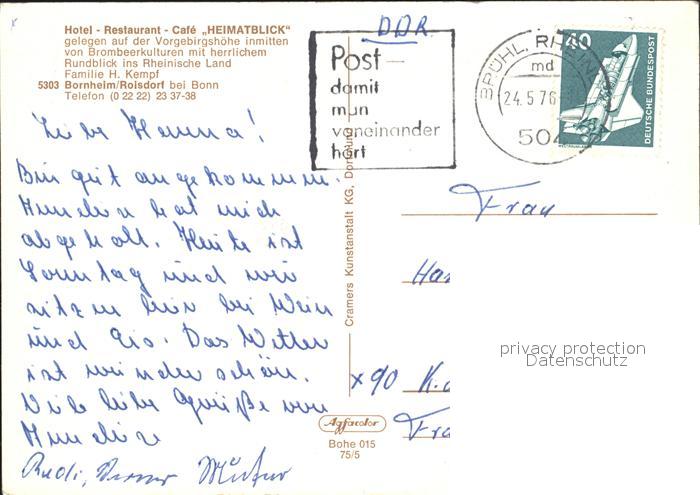 Hotel - Restaurant - Café „HEIMATBLICK"
gelegen auf der Vorgebirgshöhe inmitten
von Brombeerkulturen mit herrlichem
Rundblick ins Rheinische Land
Familie H. Kempf
5303 Bornheim/Roisdorf bei Bonn
Telefon (0 22 22) 23 37-38
Liebe Hanna!
Bin gut angekommen.
hat mich
abgeholt. Heute ist
Sonntag und wir
sitzen hier bei Wein
und Eis. Das Wetter
ist wieder schön.
Viele liebe Grüße von
Rudi, Werner
DDR
Post-
damit
man
voneinander
hört
BRÜHL, RHEINL
md
24.5.76
504
40
DEUTSCHE BUNDESPOST
WELTRAUMLABOR
Cramers Kunstanstalt KG, Dortmund
Frau
Han
x 90 K.
Fra
Agfacolor
Bohe 015
75/5
privacy protection
Datenschutz